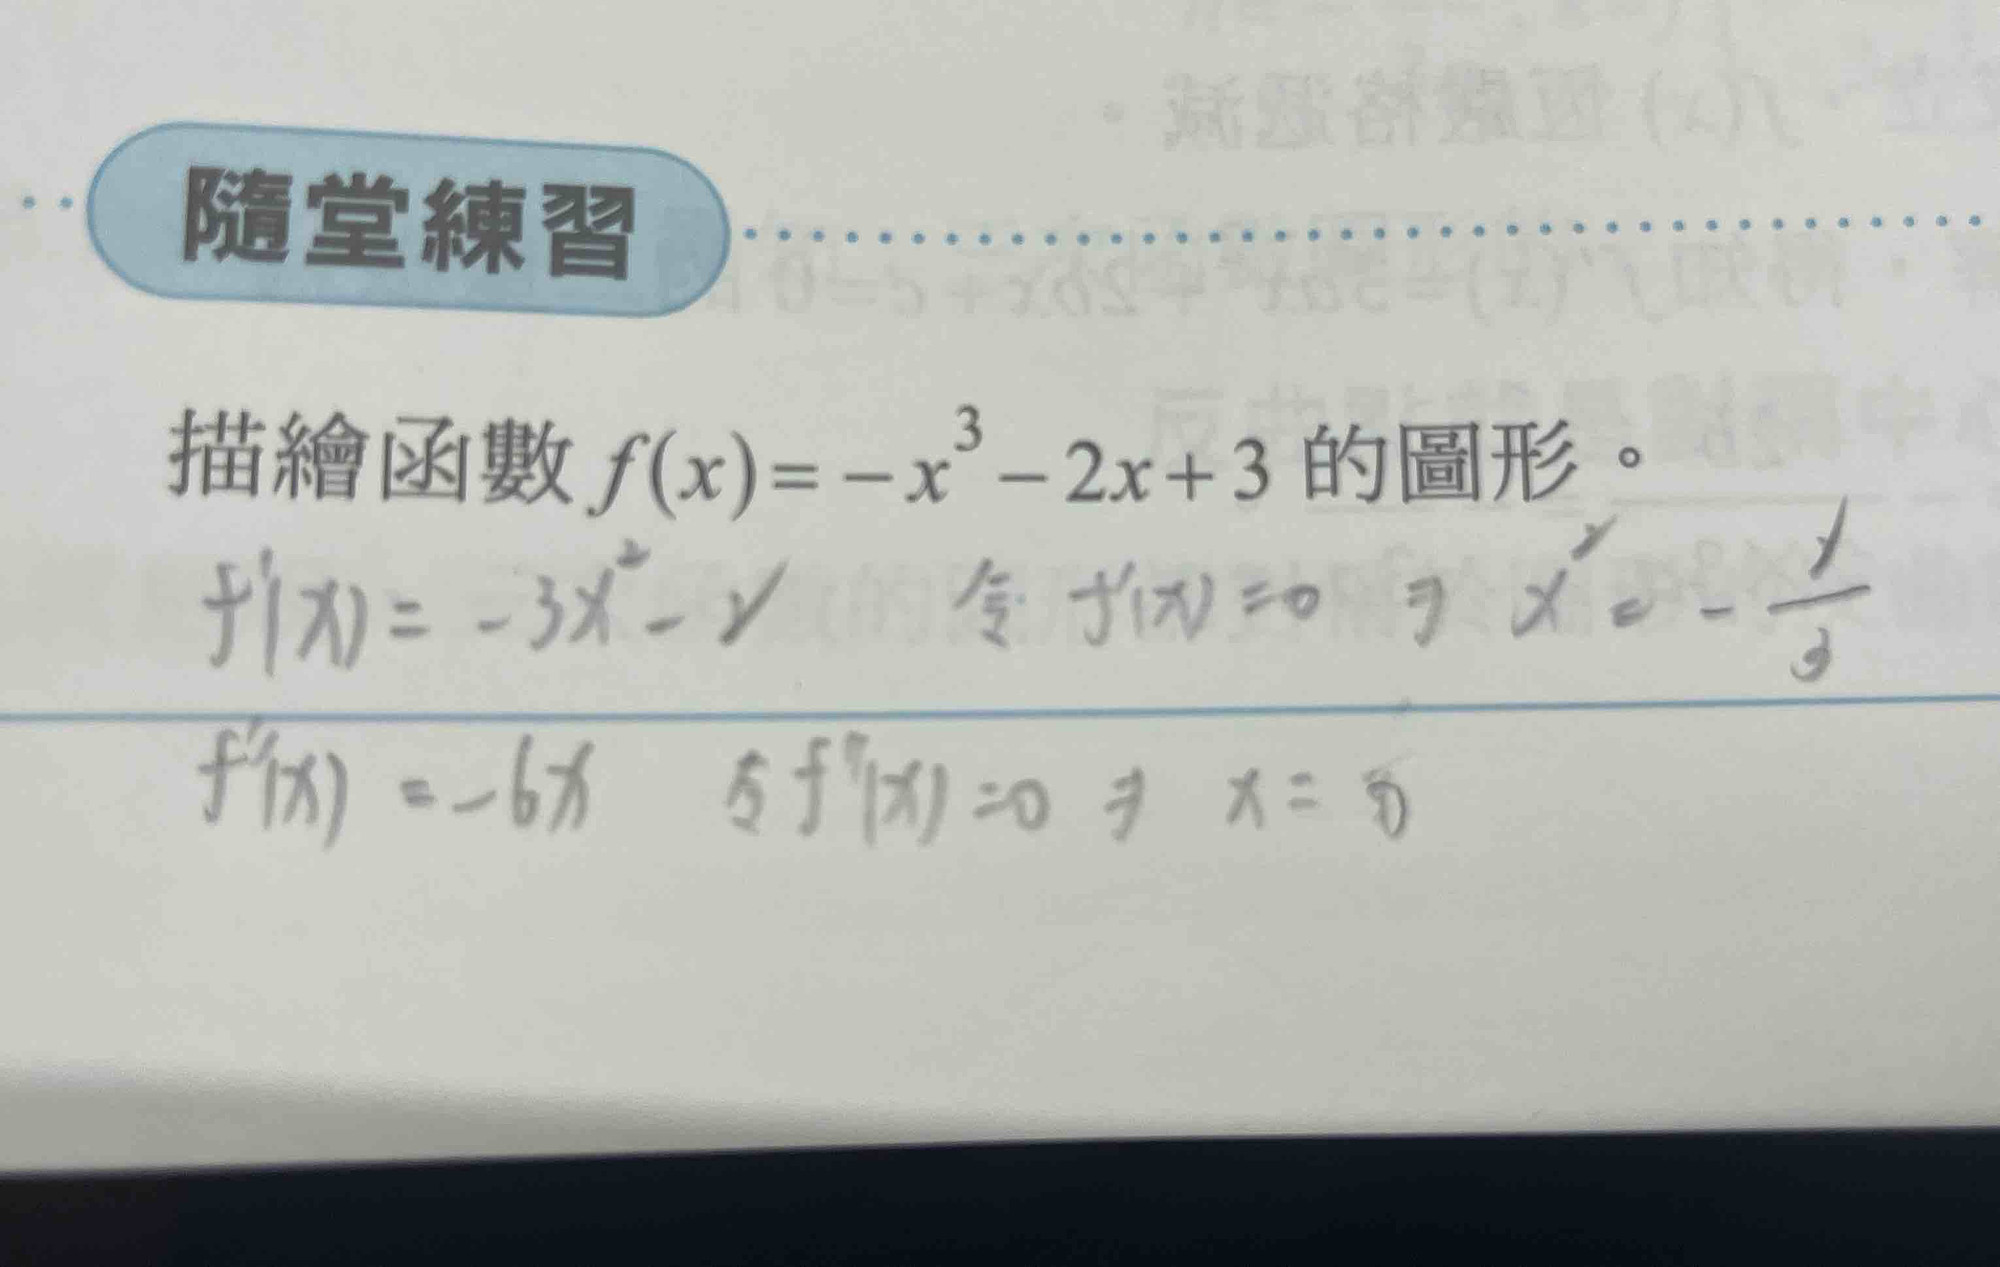 隨堂練習
描繪函數 f(x)=−x³−2x+3 的圖形。
f'(x) = -3x² - 2 令 f'(x) = 0 ⇒ x² = -2/3
f''(x) = -6x 令 f''(x) = 0 ⇒ x = 0